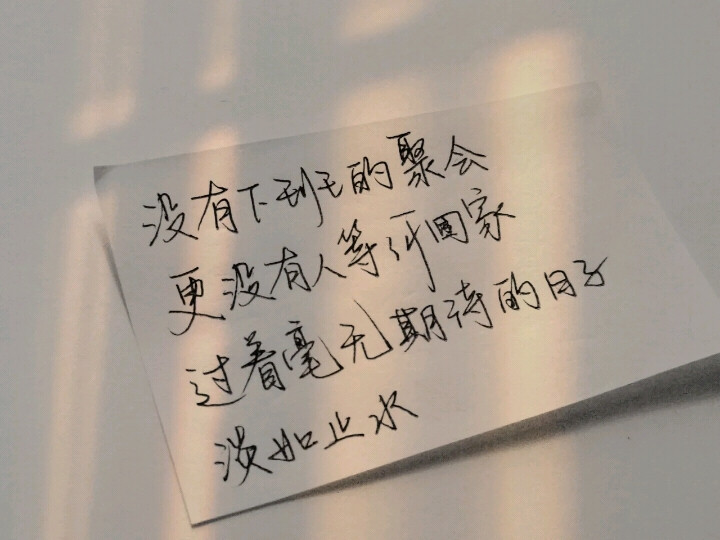 没有下班的聚会
更没有人等你回家
过着毫无期待的日子
淡如止水